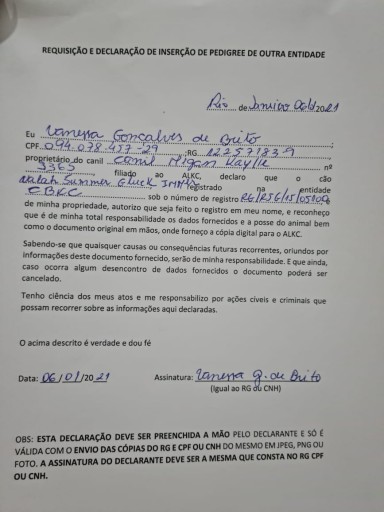 REQUISIÇÃO E DECLARAÇÃO DE INSERÇÃO DE PEDIGREE DE OUTRA ENTIDADE
Rio de Janeiro 06/01/2021
Eu Vanessa Gonçalves de Brito
CPF 094.078.457-29 ;RG
proprietário do canil Canil Migan Kaylla nº
3365 filiado ao ALKC, declaro que o cão
Summer Gluck registrado na entidade
CBKC sob o número de registro
de minha propriedade, autorizo que seja feito o registro em meu nome, e reconheço
que é de minha total responsabilidade os dados fornecidos e a posse do animal bem
como o documento original em mãos, onde forneço a cópia digital para o ALKC.
Sabendo-se que quaisquer causas ou consequências futuras recorrentes, oriundos por
informações deste documento fornecido, serão de minha responsabilidade. E que ainda,
caso ocorra algum desencontro de dados fornecidos o documento poderá ser
cancelado.
Tenho ciência dos meus atos e me responsabilizo por ações cíveis e criminais que
possam recorrer sobre as informações aqui declaradas.
O acima descrito é verdade e dou fé
Data: 06/01/2021 Assinatura: Vanessa G. de Brito
(Igual ao RG ou CNH)
OBS: ESTA DECLARAÇÃO DEVE SER PREENCHIDA A MÃO PELO DECLARANTE E SÓ É
VÁLIDA COM O ENVIO DAS CÓPIAS DO RG E CPF OU CNH DO MESMO EM JPEG, PNG OU
FOTO. A ASSINATURA DO DECLARANTE DEVE SER A MESMA QUE CONSTA NO RG CPF
OU CNH.